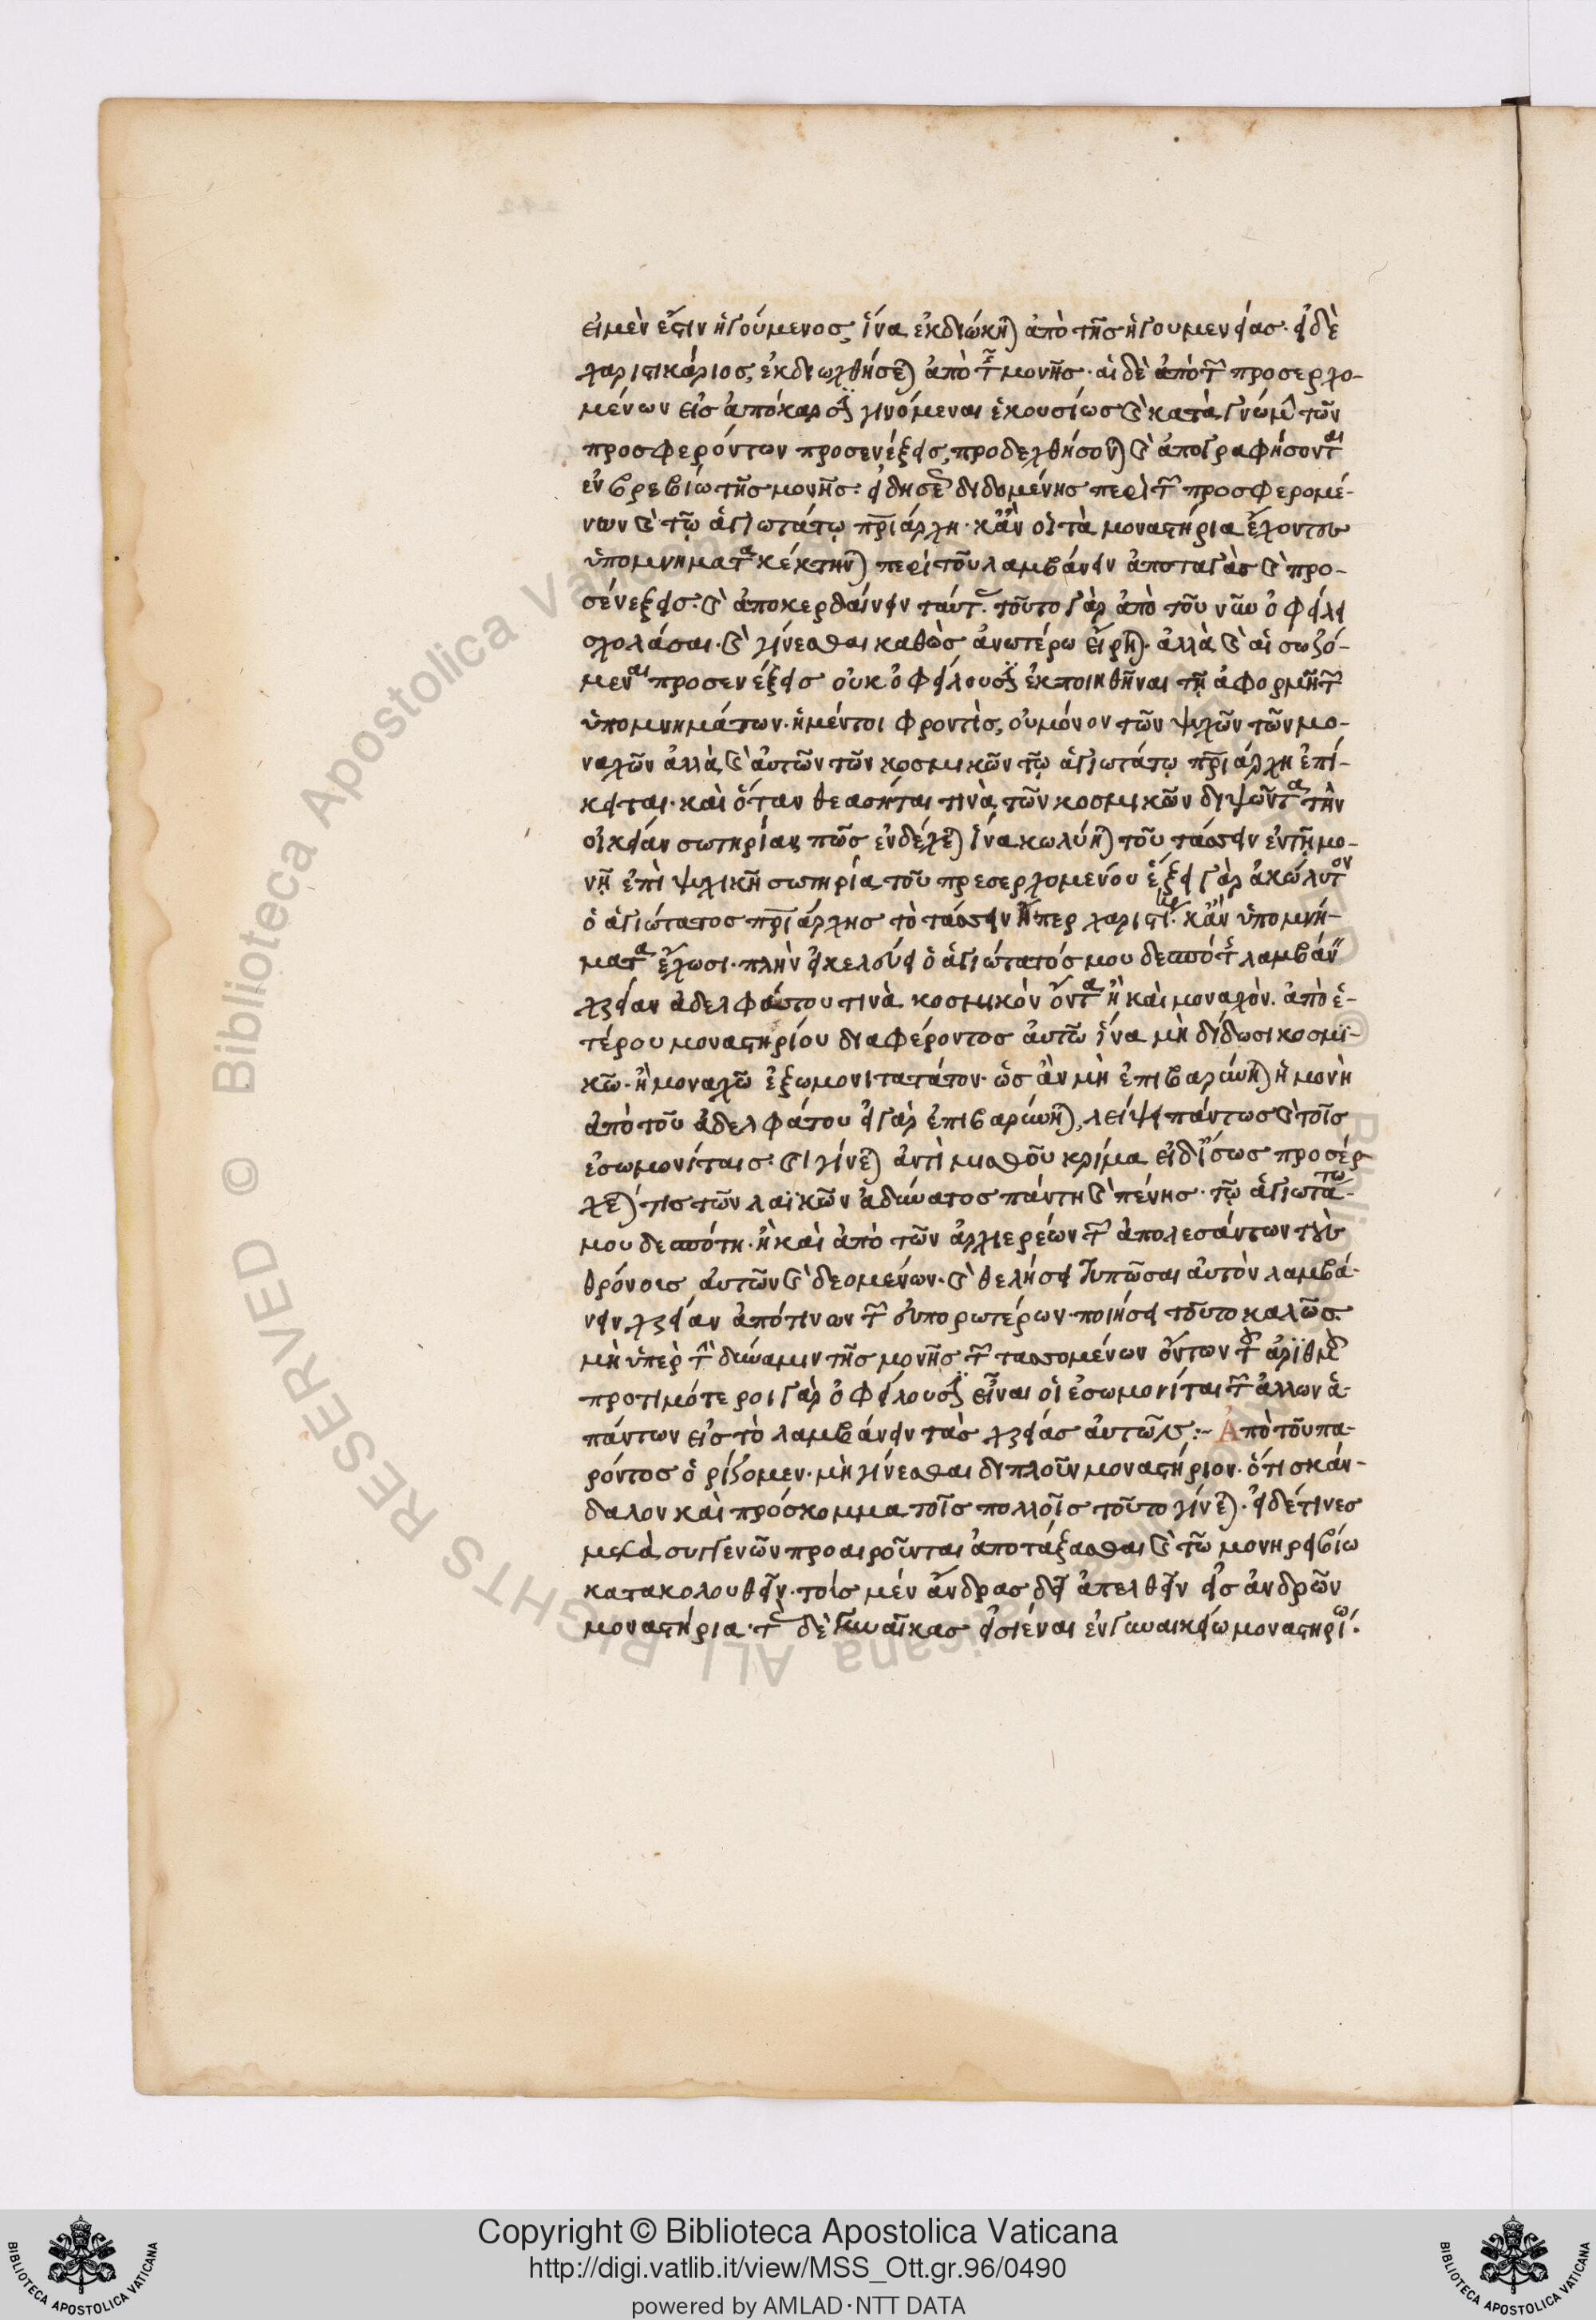 εἰ μὲν ἔστιν ἡγούμενος, ἵνα ἐκδιώκηται ἀπὸ τῆς ἡγουμενείας· εἰ δὲ
χαριστικάριος, ἐκδιωχθήσεται ἀπὸ τῆς μονῆς· αἱ δὲ ἀπὸ τῶν προσερχο-
μένων εἰς ἀπόκαρσιν γινόμεναι ἑκουσίως καὶ κατὰ γνώμην τῶν
προσφερόντων προσενέξεις, προδεχθήσονται καὶ ἀπογραφήσονται
ἐν βρεβίω τῆς μονῆς· εἰδήσεως διδομένης περὶ τῶν προσφερομέ-
νων καὶ τῷ ἁγιωτάτῳ πριάρχη· κἂν οἱ τὰ μοναστήρια ἔχοντες
ὑπομνήματα κέκτηνται περὶ τοῦ λαμβάνειν ἀποταγὰς καὶ προ-
σένεξεις· καὶ ἀποκερδαίνειν ταύτας· τοῦτο γὰρ ἀπὸ τοῦ νῦν ὀφείλει
σχολάσαι· καὶ γίνεσθαι καθὼς ἀνωτέρω εἴρηται· ἀλλὰ καὶ αἱ σωζό-
μεναι προσενέξεις οὐκ ὀφείλουσιν ἐκποιηθῆναι τῇ ἀφορμῇ τῶν
ὑπομνημάτων· ἡ μέντοι φροντὶς, οὐ μόνον τῶν ψυχῶν τῶν μο-
ναχῶν ἀλλὰ καὶ αὐτῶν τῶν κοσμικῶν τῷ ἁγιωτάτῳ πριάρχη ἐπί-
κειται· καὶ ὅταν θεασηται τινὰ τῶν κοσμικῶν διψῶντα τὴν
οἰκείαν σωτηρίαν, πῶς ἐνδέχεται ἵνα κωλύηται τοῦ τάσσειν ἐν τῇ μο-
νῇ ἐπὶ ψυχικῇ σωτηρία τοῦ προσερχομένου ἕξει γὰρ ἀκώλυτον
ὁ ἁγιώτατος πριάρχης τὸ τάσσειν κἂν ὑπομνή-
ματα ἔχωσι· πλὴν εἰ κελεύει ὁ ἁγιώτατός μου δεσπότης λαμβάνειν
χρείαν ἀδελφάτου τινὰ κοσμικὸν ὄντα ἢ καὶ μοναχὸν· ἀπὸ ἑ-
τέρου μοναστηρίου διαφέροντος αὐτῶ ἵνα μὴ δίδωσι κοσμι-
κῶ· ἢ μοναχῶ ἐξωμονιτατάτον· ὡς ἂν μὴ ἐπιβαρύνηται ἡ μονὴ
ἀπὸ τοῦ ἀδελφάτου εἰ γὰρ ἐπιβαρύνηται, λείψει πάντως καὶ τοῖς
ἐσωμονίταις· καὶ γίνεται ἀντὶ μισθοῦ κρίμα εἰ δ' ἴσως προσέρ
χεται τις τῶν λαϊκῶν ἀδύνατος πάντη καὶ πένης· τῷ ἁγιωτάτω
μου δεσπότη· ἢ καὶ ἀπὸ τῶν ἀρχιερέων τῶν ἀπολεσάντων τοὺς
θρόνους αὐτῶν καὶ δεομένων· καὶ θελήσει τυπῶσαι αὐτὸν λαμβά-
νειν χρείαν ἀπό τινων τῶν εὐπορωτέρων· ποιήσει τοῦτο καλῶς.
μὴ ὑπὲρ τὴν δύναμιν τῆς μονῆς τῶν τασσομένων ὄντων τὸν ἀριθμὸν
προτιμότεροι γὰρ ὀφείλουσιν εἶναι οἱ ἐσωμονίται τῶν ἄλλων ἁ-
πάντων εἰς τὸ λαμβάνειν τὰς χρείας αὐτῶν:- Ἀπὸ τοῦ πα-
ρόντος ὁρίζομεν· μὴ γίνεσθαι διπλοῦν μοναστήριον· ὅτι σκάν-
δαλον καὶ πρόσκομμα τοῖς πολλοῖς τοῦτο γίνεται· εἰ δέ τινες
μετὰ συγγενῶν προαιροῦνται ἀποτάξασθαι καὶ τῶ μονήρει βίω
κατακολουθεῖν· τοὺς μὲν ἄνδρας δεῖ ἀπελθεῖν εἰς ἀνδρῶν
μοναστήρια· τὰς δὲ γυναῖκας εἰσιέναι ἐν γυναικείω μοναστηρίω.
Copyright © Biblioteca Apostolica Vaticana
http://digi.vatlib.it/view/MSS_Ott.gr.96/0490
powered by AMLAD·NTT DATA